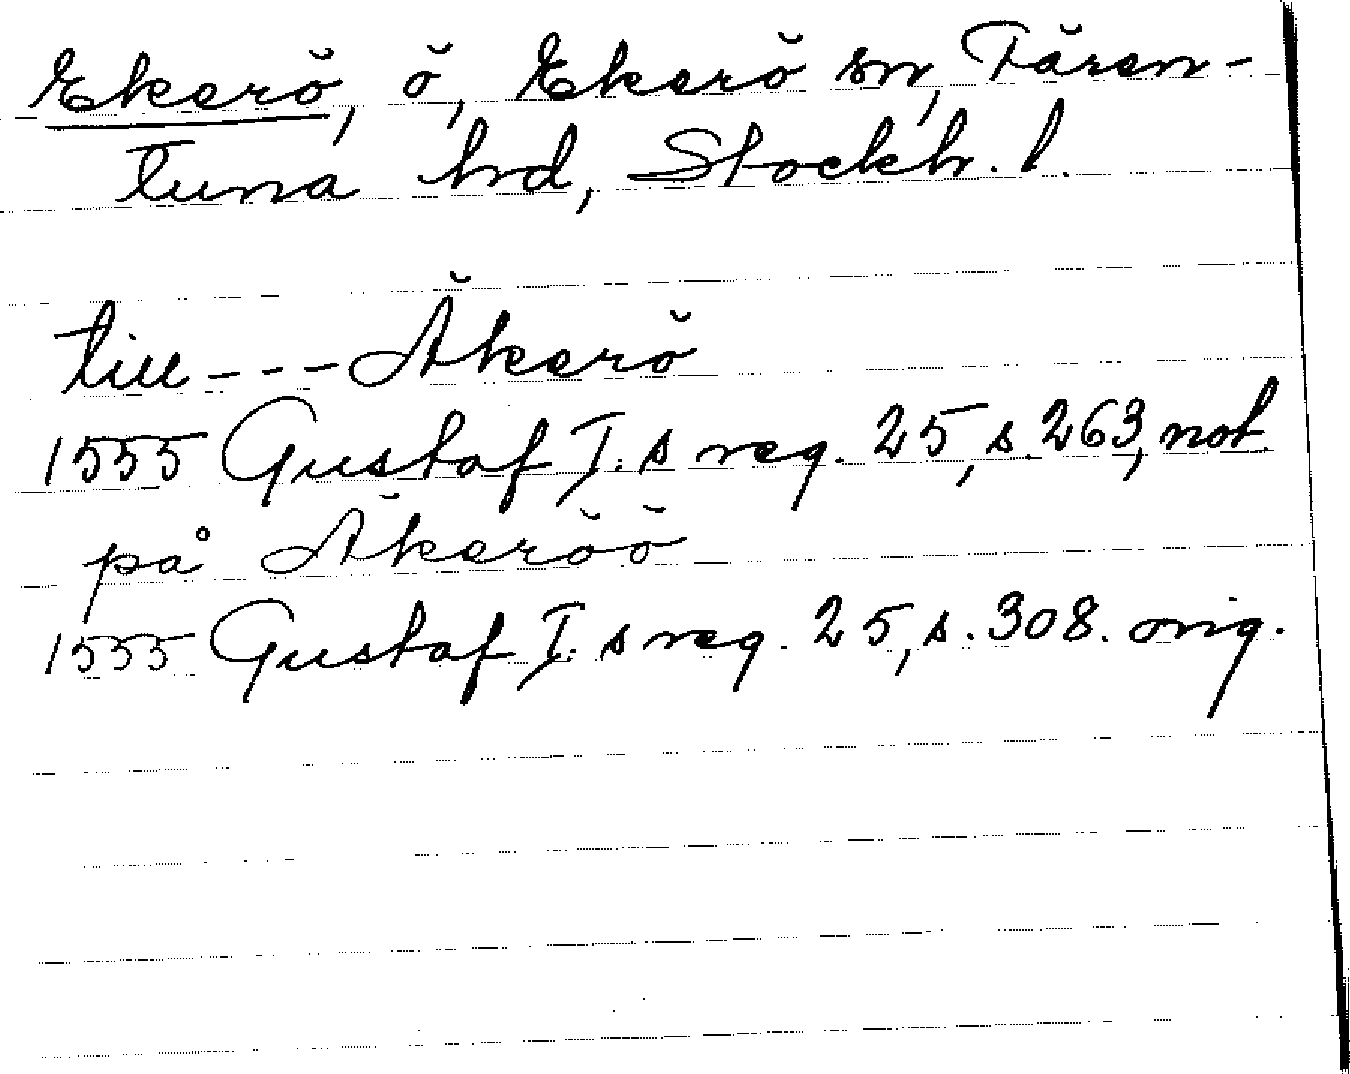 Ekerö, ö, Ekerö sn, Fären-
tuna hrd, Stockh. l.
till --- Äkerö
1555 Gustaf I:s reg. 25, s. 263, not.
på Äkeröö
1555 Gustaf I:s reg. 25, s. 308. orig.